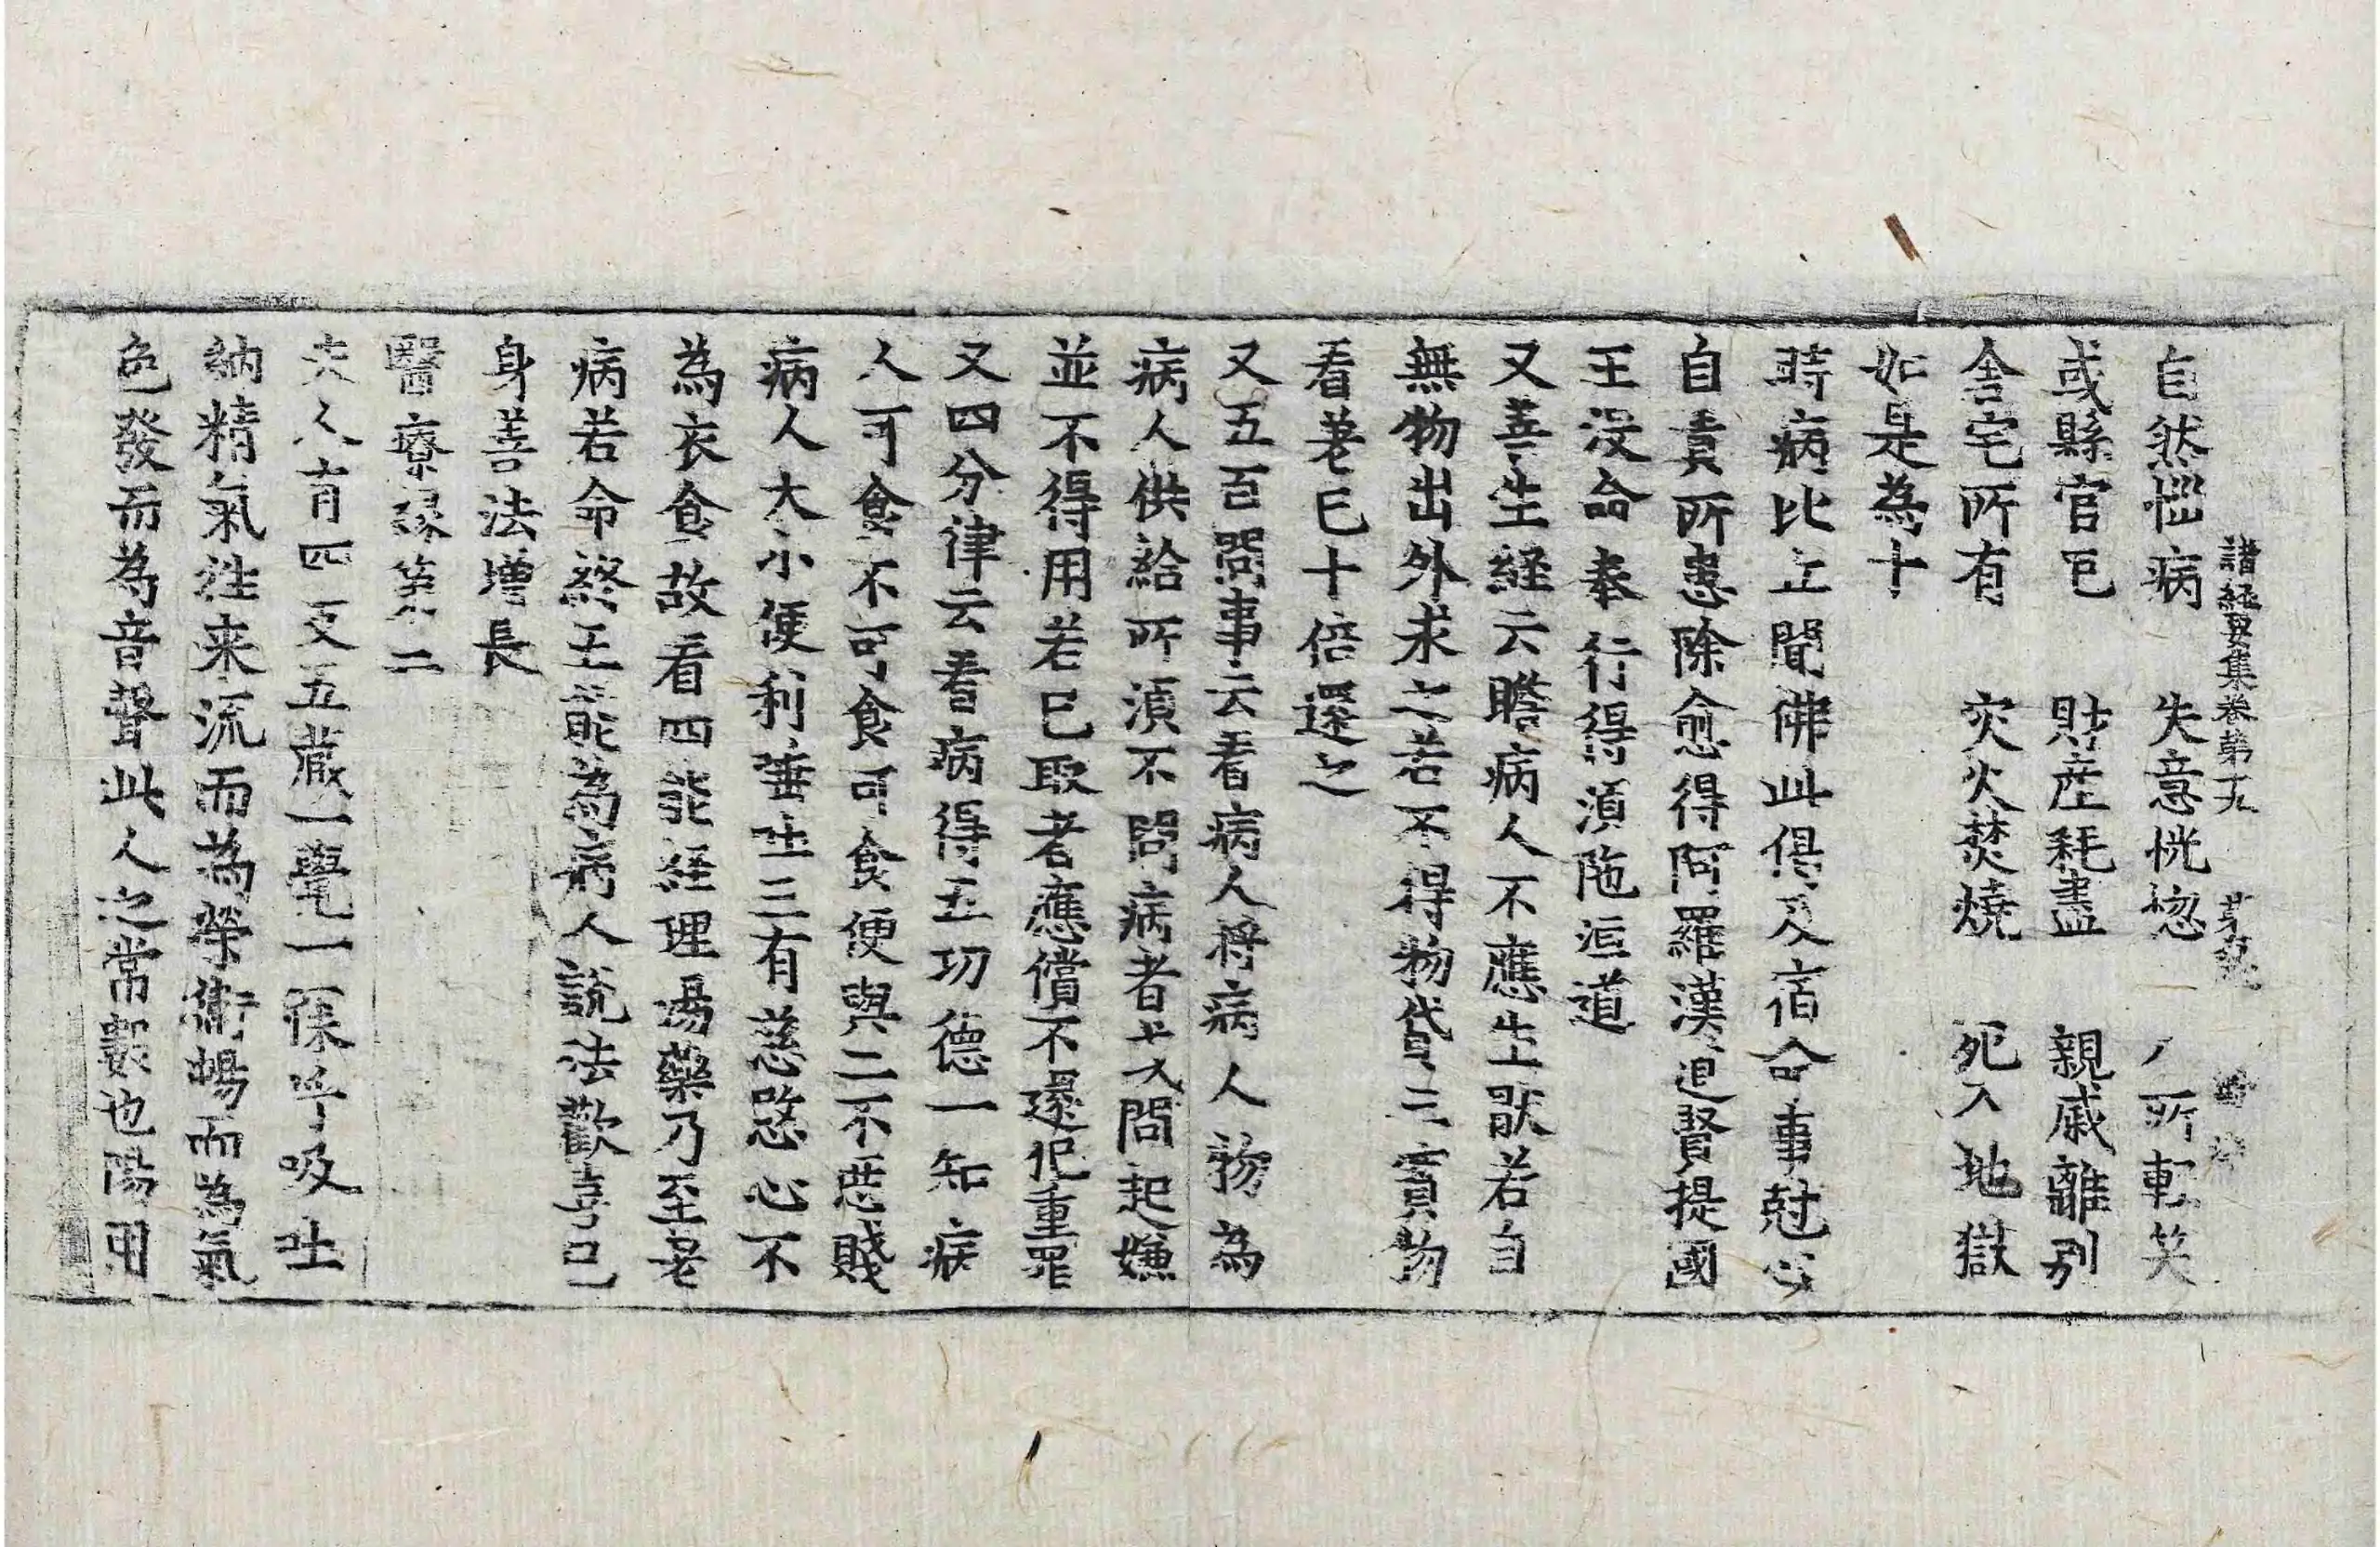 諸経要集卷第十九
自然惱病　失意恍惚　人所輕笑
或縣官厄　財產耗盡　親戚離别
舎宅所有　灾火焚燒　死入地獄
如是為十
時病比丘聞佛此偈及宿命事尅心
自責所患除愈得阿羅漢道賢提國
王沒命奉行得湏陁洹道
又善生経云瞻病人不應生猒若自
無物出外求之若不得物貸三寳物
看差已十倍還之
又五百問事云看病人將病人物為
病人供給所湏不問病者或問起嫌
並不得用若已取者應償不還犯重罪
又四分律云看病得五功德一知病
人可食不可食可食便與二不惡賤
病人大小便利唾吐三有慈愍心不
為衣食故看四能経理湯藥乃至差
病若命終五能為病人說法歡喜已
身善法增長
醫療緣第二
夫人有四支五藏一覺一寐呼吸吐
納精氣往来流而為榮衛暢而為氣
色發而為音聲此人之常數也陽用